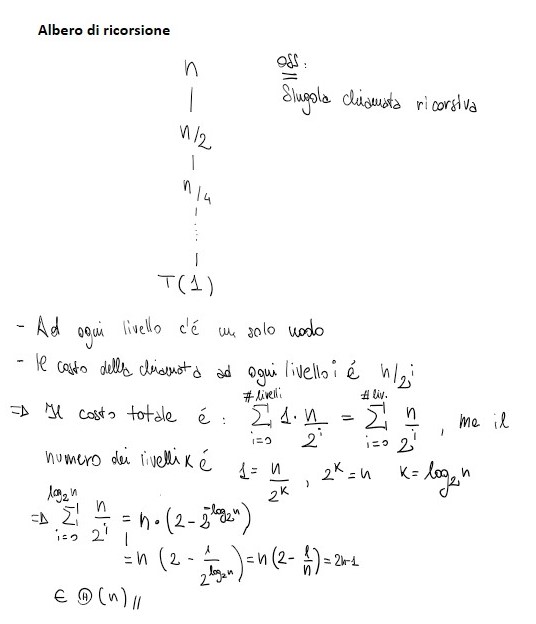 Albero di ricorsione
n
oss:
Singola chiamata ricorsiva
n/2
n/4
T(1)
- Ad ogni livello c'é un solo nodo
- Il costo della chiamata ad ogni livello i é n/2^i
=> Il costo totale é : ∑_{i=0}^{# livelli} 1 · n/2^i = ∑_{i=0}^{# liv.} n/2^i , ma il
numero dei livelli k é 1 = n/2^k , 2^k = n k = log_2 n
=> ∑_{i=0}^{log_2 n} n/2^i = n · (2 - 2^{-log_2 n})
= n (2 - 1/2^{log_2 n}) = n (2 - 1/n) = 2n-1
∈ Θ(n) //